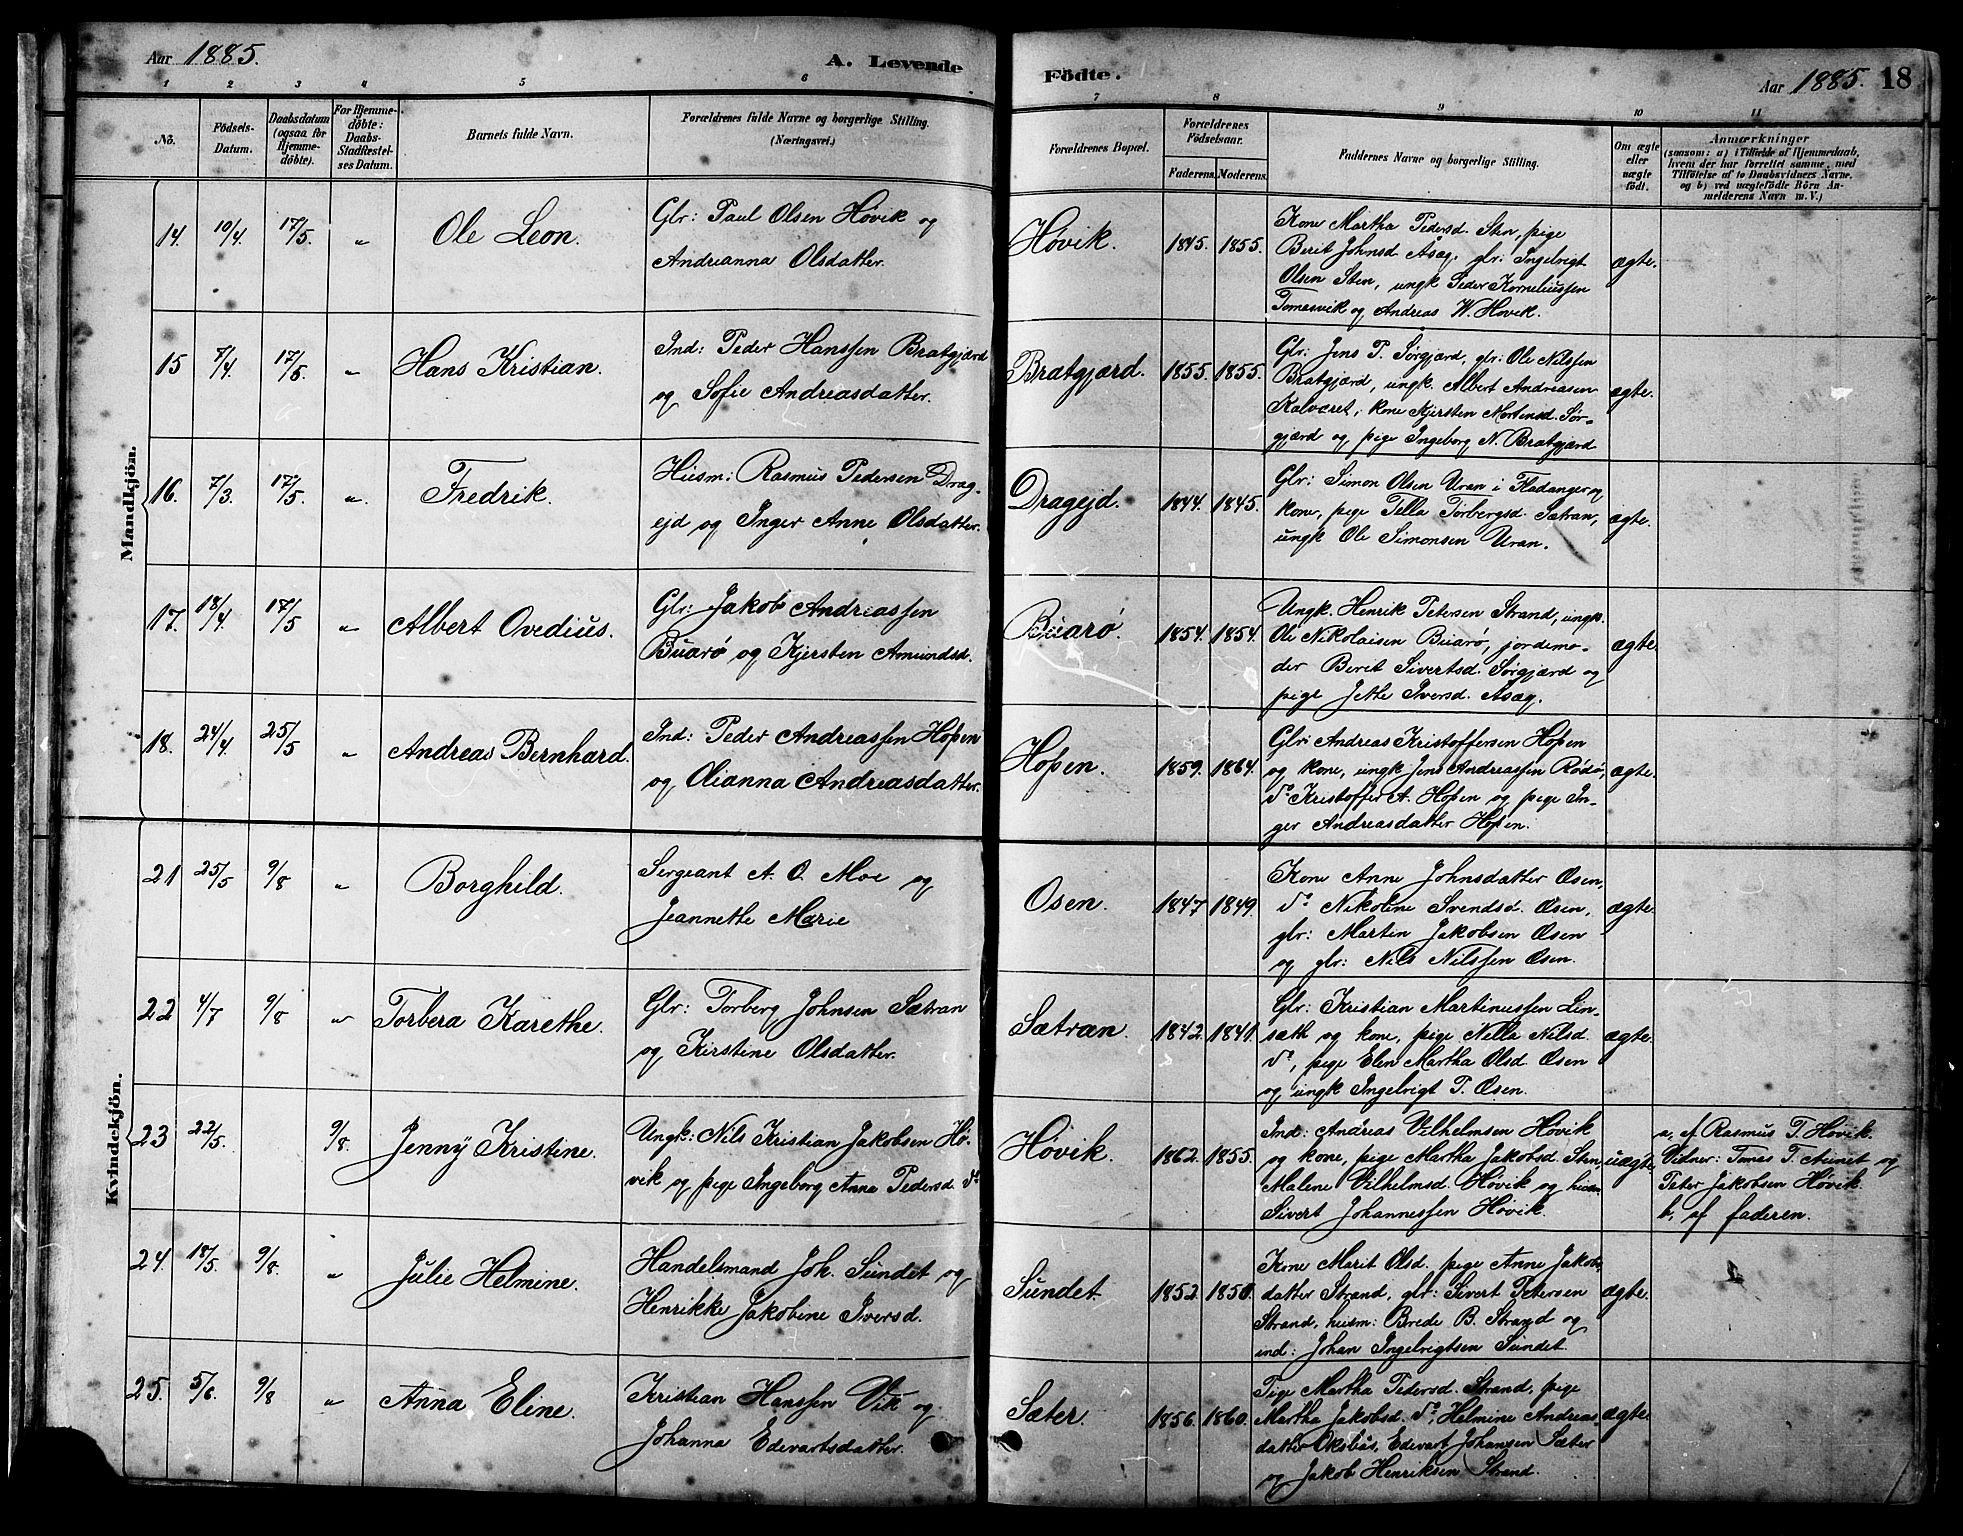 Aar 1885.
A. Levende
Födte.
Aar 1885. 18
1 2 3 4 5 6 7 8 9 10 11
No.
Födsels-
Datum.
Daabsdatum
(ogsaa for
Hjemme-
döbte).
For Hjemme-
döbte:
Daabs-
Stadfæstel-
ses Datum.
Barnets fulde Navn.
Forældrenes fulde Navne og borgerlige Stilling.
(Næringsvei.)
Forældrenes Bopæl.
Forældrenes
Födselsaar.
Faderens. Moderens.
Faddernes Navne og borgerlige Stilling.
Om ægte
eller
uægte
födt.
Anmærkninger
(saasom: a) i Tilfælde af Hjemmedaab,
hvem der har forrettet samme, med
Tilföielse af to Daabsvidners Navne,
og b) ved uægtefödte Börn An-
melderens Navn m.V.)
Mandkjön.
14. 10/4. 17/5. " Ole Leon.
Glr: Paul Olsen Høvik og
Andrianna Olsdatter.
Høvik. 1845. 1855.
Kone Martha Pedersd. Sten, pige
Berit Johnsd. Asæg, glr: Ingelvigt
Olsen Sten, ungk Peder Korneliussen
Tomasvik og Andreas W. Høvik.
ægte.
15 7/4. 17/5. " Hans Kristian.
Ind: Peder Hanssen Bratgjærd
og Sofie Andreasdatter.
Bratgjærd. 1855. 1855.
Glr: Jens P. Sørgjærd, glr: Ole Nilssen
Bratgjærd, ungk. Albert Andreasen
Kalværet, kone Kjersten Martinsd. Sør-
gjærd og pige Ingeborg N. Bratgjærd
ægte.
16. 7/3. 17/5. " Fredrik.
Husm: Rasmus Pedersen Drag-
ejd og Inger Anne Olsdatter.
Dragejd. 1844. 1845.
Glr: Simon Olsen Uran i Fladanger og
kone, pige Tella Torbergsd. Sætran,
ungk Ole Simonsen Uran.
ægte.
17. 18/4. 17/5 " Albert Ovedius.
Glr: Jakob Andreassen
Buarø og Kjersten Amundsd.
Buarø. 1854. 1854.
Ungk. Henrik Petersen Strand, ungk.
Ole Nikolaisen Buarø, jordemo-
der Berit Sivertsd. Sørgjærd og
pige Jette Iversd. Asæg.
ægte.
18. 24/4. 25/5 " Andreas Bernhard.
Ind: Peder Andreassen Hopen
og Olianna Andreasdatter.
Hopen. 1859. 1864.
Glr: Andreas Kristoffersen Hopen
og kone, ungk Jens Andreassen Rødø,
do Kristoffer A. Hopen og pige In-
ger Andreasdatter Hopen.
ægte.
Kvindekjön.
21 25/5 9/8 " Borghild.
Sergeant A. O. Moe og
Jeannette Marie
Osen. 1847. 1849.
Kone Anne Johnsdatter Osen,
do Nikoline Svendsd. Osen,
glr: Martin Jakobsen Osen
og glr: Nils Nilssen Osen.
ægte.
22 4/7 9/8 " Torbera Karethe.
Glr: Torberg Johnsen Sætran
og Kirstine Olsdatter.
Sætran. 1842. 1841.
Glr: Kristian Martinussen Lin-
sæth og kone, pige Nella Nilsd.
do, pige Elen Martha Olsd. Osen
og ungk Ingelvigt T. Osen.
ægte.
23 22/5. 9/8. Jenny Kristine.
Ungk: Nils Kristian Jakobsen Hø-
vik og pige Ingeborg Anna Pedersd. do
Høvik. 1862. 1855.
Ind: Andreas Vilhelmsen Høvik
og kone, pige Martha Jakobsd. Sten,
Malene Vilhelmsd. Høvik og husm:
Sivert Johannessen Høvik.
uægte.
a, af Rasmus T. Høvik.
Vidner: Tomas T. Aunet og
Peter Jakobsen Høvik.
b, af faderen.
24. 18/5. 9/8. " Julie Helmine.
Handelsmand Joh. Sundet og
Henrikke Jakobine Iversd.
Sundet. 1852. 1850.
Kone Marit Olsd. pige Anne Jakobs-
datter Strand, glr: Sivert Petersen
Strand, husm: Brede B. Strand og
ind: Johan Ingelvigtsen Sundet.
ægte.
25. 5/6. 9/8 " Anna Eline.
Kristian Hanssen Vik og
Johanna Edevartsdatter.
Sæter. 1856. 1860.
Pige Martha Pedersd. Strand, pige
Martha Jakobsd. do, Helmine Andreas-
datter Oksbås, Edevart Johansen Sæter
og Jakob Henriksen Strand.
ægte.